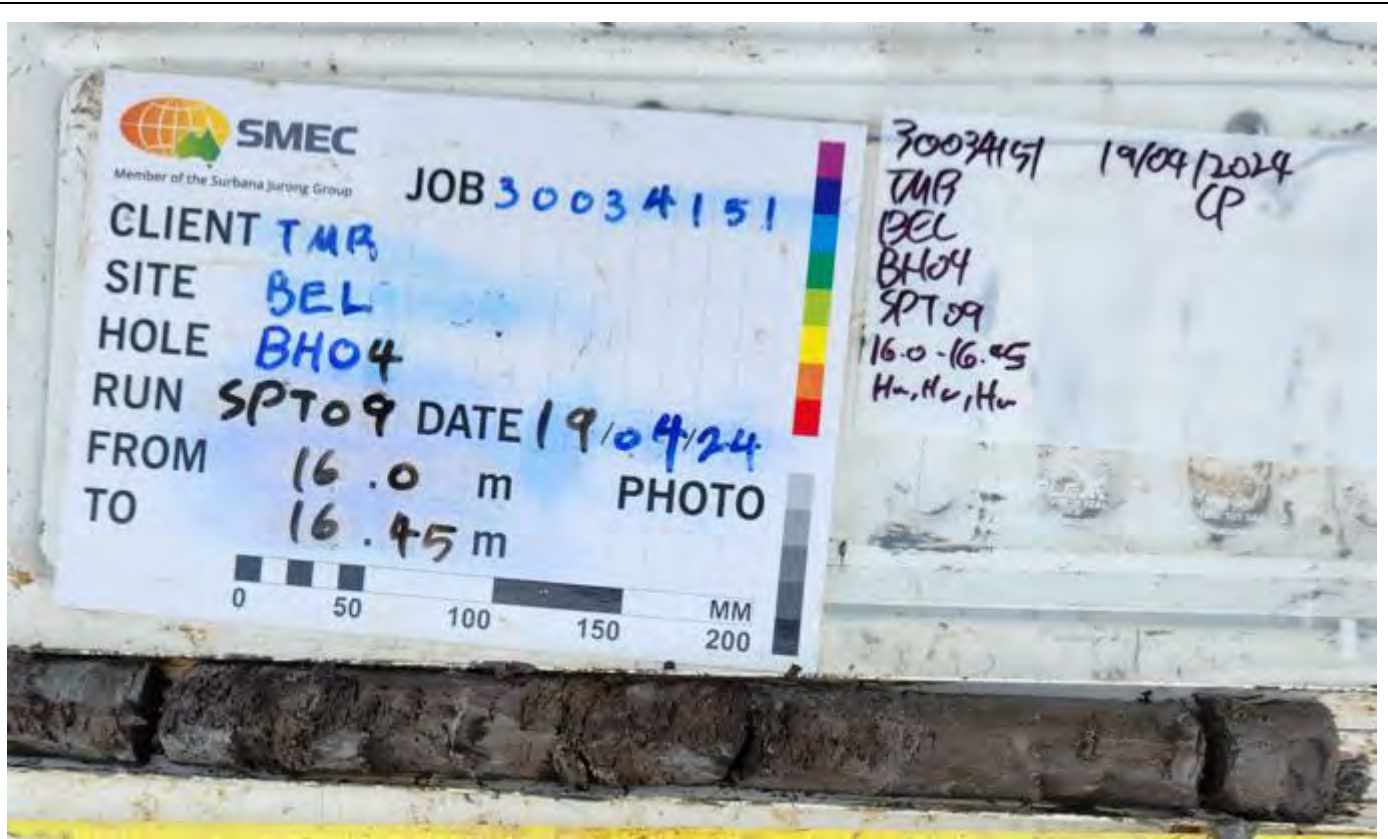 SMEC
Member of the Surbana Jurong Group
JOB 30034151
CLIENT TMR
SITE BEL
HOLE BH04
RUN SPT09 DATE 19/04/24
FROM 16.0 m PHOTO
TO 16.45 m
0 50 100 150 200 MM
30034151 19/04/2024
TMR CP
BEL
BH04
SPT09
16.0-16.45
Hw, Hw, Hw